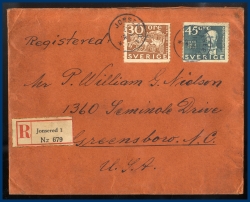 30 ÖRE
SVERIGE
45 ÖRE
SVERIGE
Registered.
Mr P. William G. Nielson
1360 Seminole Drive
Greensboro, N.C.
U.S.A.
R
Jonsered 1
Nr 679